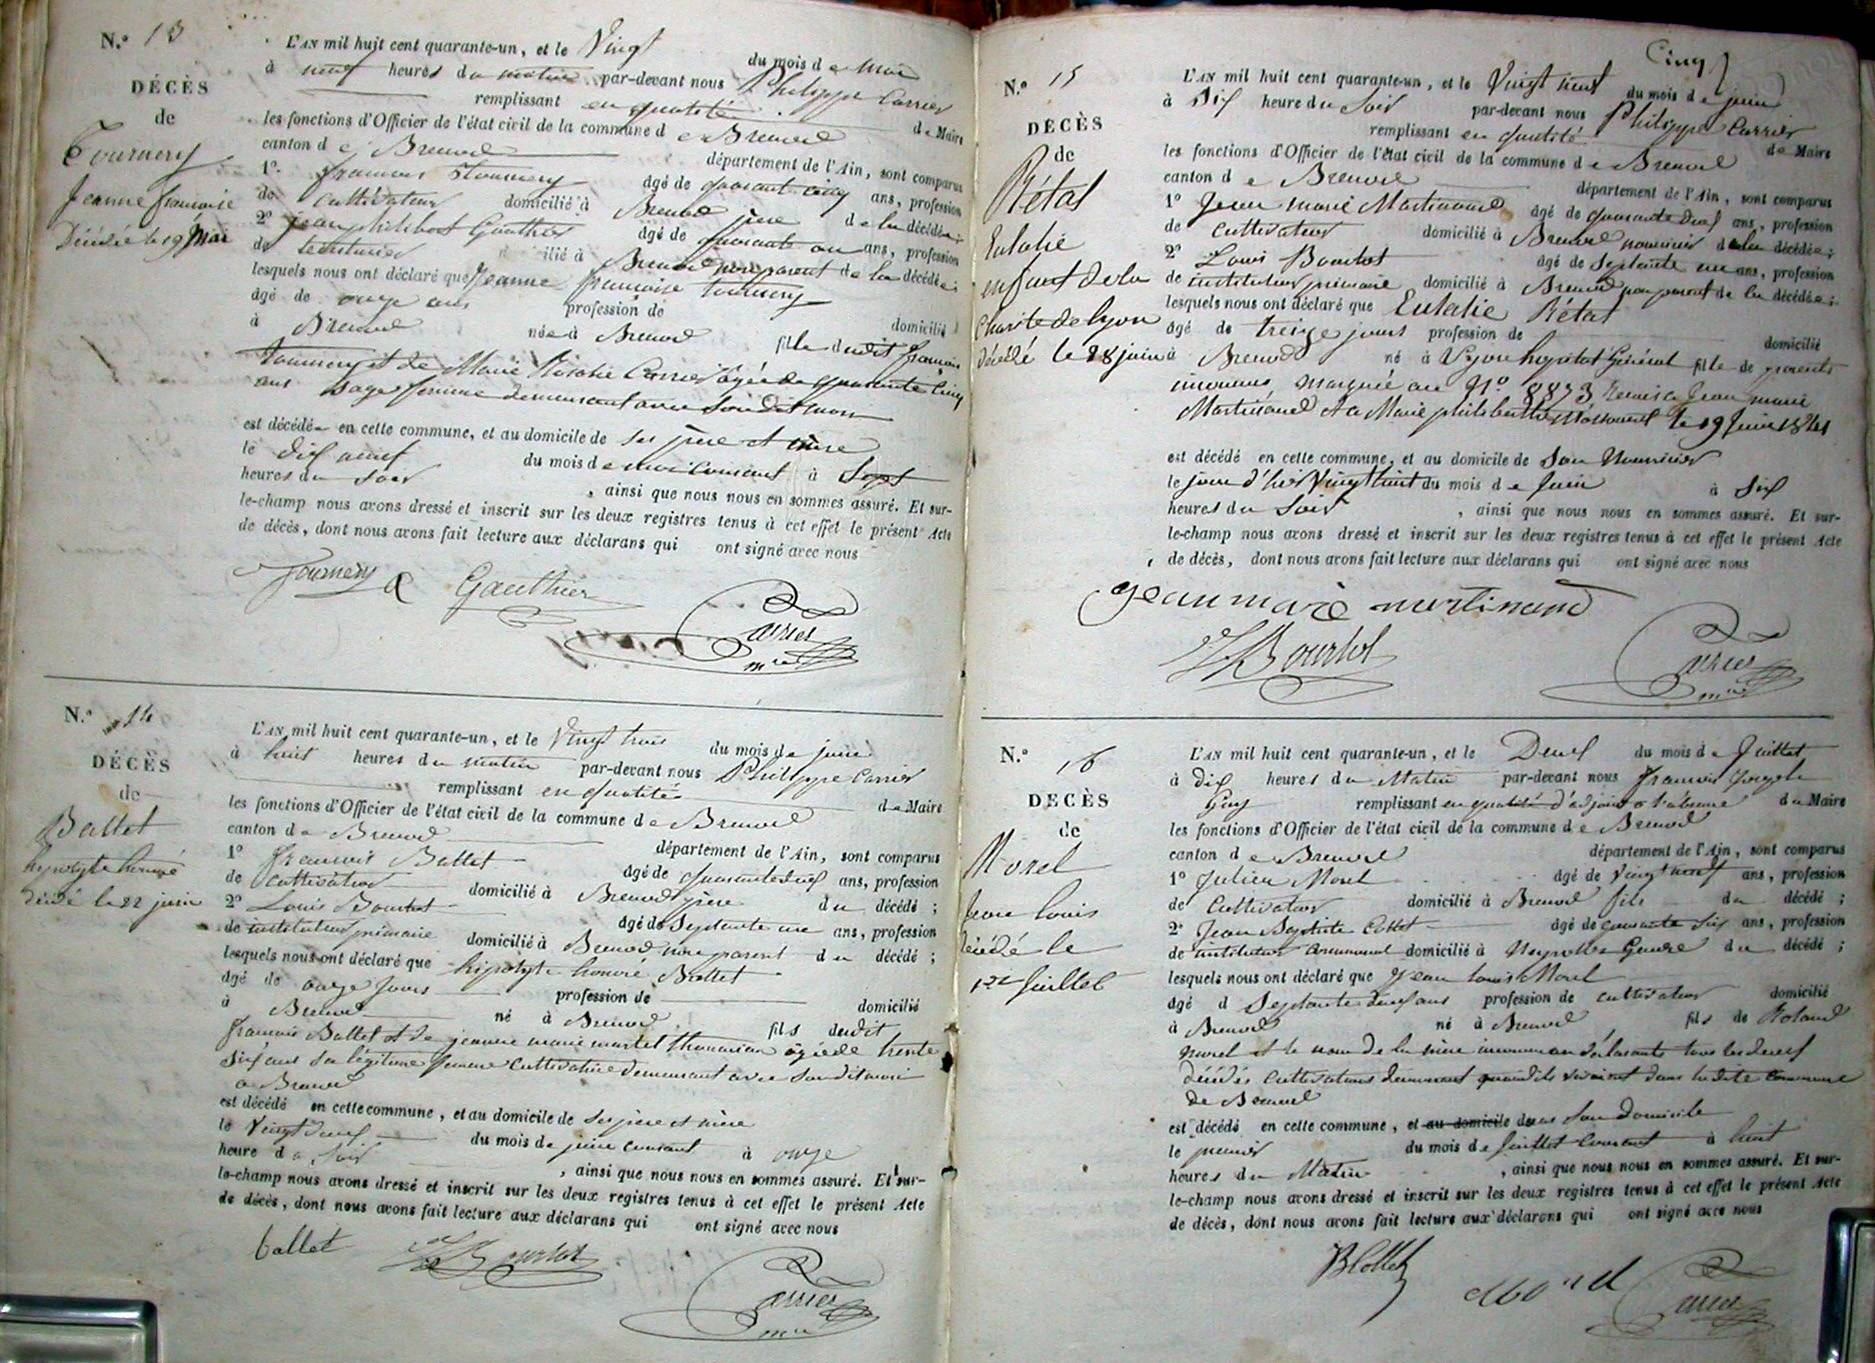 N.° 13
DÉCÈS
de
Tournery
Jeanne françoise
Décédée le 19 Mai
L'AN mil huit cent quarante-un, et le Vingt du mois de Mai
à neuf heures du matin par-devant nous Philippe Carrier
remplissant en qualité de Maire
les fonctions d'Officier de l'état civil de la commune de Brenod
canton de Brenod département de l'Ain, sont comparus
1° françois Tournery âgé de quarante cinq ans, profession
de cultivateur domicilié à Brenod père de la décédée;
2° jean philibert Gauthier âgé de quarante un ans, profession
de domicilié à Brenod non parent de la décédée;
lesquels nous ont déclaré que Jeanne françoise tournery
âgé de onze ans profession de domicilié
à Brenod née à Brenod fille dudit françois
Tournery et de Marie Rosalie Carrier âgée de quarante cinq
ans sage femme demeurant avec son dit mari
est décédée en cette commune, et au domicile de ses père et mère
le dix neuf du mois de mai courant à Sept
heures du soir, ainsi que nous nous en sommes assuré. Et sur-
le-champ nous avons dressé et inscrit sur les deux registres tenus à cet effet le présent Acte
de décès, dont nous avons fait lecture aux déclarans qui ont signé avec nous
Tournery Gauthier
Carrier
mre
N.° 14
DÉCÈS
de
Ballet
hypolyte honoré
Décédé le 22 juin
L'AN mil huit cent quarante-un, et le Vingt trois du mois de juin
à huit heures du matin par-devant nous Philippe Carrier
remplissant en qualité de Maire
les fonctions d'Officier de l'état civil de la commune de Brenod
canton de Brenod département de l'Ain, sont comparus
1° françois Ballet âgé de quarante deux ans, profession
de cultivateur domicilié à Brenod père du décédé;
2° Louis Bourbot âgé de Septante un ans, profession
de instituteur primaire domicilié à Brenod non parent du décédé;
lesquels nous ont déclaré que hipolyte honoré Ballet
âgé de onze jours profession de domicilié
à Brenod né à Brenod fils dudit
françois Ballet et de jeanne marie martel âgée de trente
six ans sa légitime femme cultivatrice demeurant avec son dit mari
a Brenod
est décédé en cette commune, et au domicile de ses père et mère
le Vingt deux du mois de juin courant à onze
heure du soir, ainsi que nous nous en sommes assuré. Et sur-
le-champ nous avons dressé et inscrit sur les deux registres tenus à cet effet le présent Acte
de décès, dont nous avons fait lecture aux déclarans qui ont signé avec nous
ballet Bourbot
Carrier
mre
Cinq
N.° 15
DÉCÈS
de
Rétat
Eulalie
enfant de la
Charité de lyon
décédé le 28 juin
L'AN mil huit cent quarante-un, et le Vingt neuf du mois de juin
à Six heure du Soir par-devant nous Philippe Carrier
remplissant en qualité de Maire
les fonctions d'Officier de l'état civil de la commune de Brenod
canton de Brenod département de l'Ain, sont comparus
1° Jean marie Martinand âgé de quarante deux ans, profession
de cultivateur domicilié à Brenod nourricier de la décédée;
2° Louis Bourbot âgé de Septante un ans, profession
de instituteur primaire domicilié à Brenod non parent de la décédée;
lesquels nous ont déclaré que Eulalie Rétat
âgé de treize jours profession de domicilié
à Brenod né à Lyon hopital Général fille de parents
inconnus marqué au N° 8873 remis a Jean marie
Martinand et a Marie philiberthe le 19 Juin 1841
est décédé en cette commune, et au domicile de Son Nourricier
le jour d'hier Vingt huit du mois de Juin à Six
heures du Soir, ainsi que nous nous en sommes assuré. Et sur-
le-champ nous avons dressé et inscrit sur les deux registres tenus à cet effet le présent Acte
de décès, dont nous avons fait lecture aux déclarans qui ont signé avec nous
jean marie martinand
Bourbot Carrier
mre
N.° 16
DECÈS
de
Morel
Jean Louis
décédé le
1er Juillet
L'AN mil huit cent quarante-un, et le Deux du mois de Juillet
à dix heures du Matin par-devant nous francois joseph
Guy remplissant en qualité d'adjoint du Maire
les fonctions d'Officier de l'état civil de la commune de Brenod
canton de Brenod département de l'Ain, sont comparus
1° Julien Morel âgé de Vingt neuf ans, profession
de Cultivateur domicilié à Brenod fils du décédé;
2° Jean Baptiste Collet âgé de quarante six ans, profession
de instituteur communal domicilié à Neyrolles Gendre du décédé;
lesquels nous ont déclaré que jean louis Morel
âgé d Septante deux ans profession de cultivateur domicilié
à Brenod né à Brenod fils de Roland
morel et le nom de la mère inconnu au déclarants tous les deux
décédés cultivateurs demeurant quand ils vivaient dans la dite commune
de Brenod
est décédé en cette commune, et au domicile dans Son Domicile
le premier du mois de Juillet courant à huit
heures du Matin, ainsi que nous nous en sommes assuré. Et sur-
le-champ nous avons dressé et inscrit sur les deux registres tenus à cet effet le présent Acte
de décès, dont nous avons fait lecture aux déclarans qui ont signé avec nous
BCollet Morel Carrier